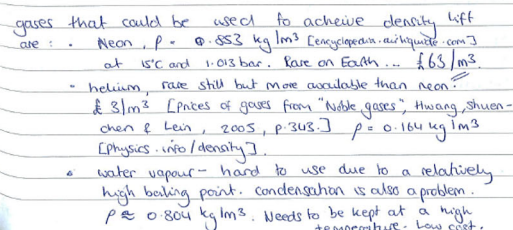 gases that could be used to acheive density lift
are : • Neon, ρ = 0.853 kg/m3 [encyclopedia.airliquide.com]
at 15°C and 1.013 bar. Rare on Earth... £63/m3.
• helium, rare still but more available than neon!
£ 3/m3 [Prices of gases from "Noble gases", Hwang, Shuen-
chen & Lein, 2005, p.343.] ρ = 0.164 kg/m3
[physics.info/density].
• water vapour - hard to use due to a relatively
high boiling point. condensation is also a problem.
ρ ≈ 0.804 kg/m3. Needs to be kept at a high
temperature. Low cost.